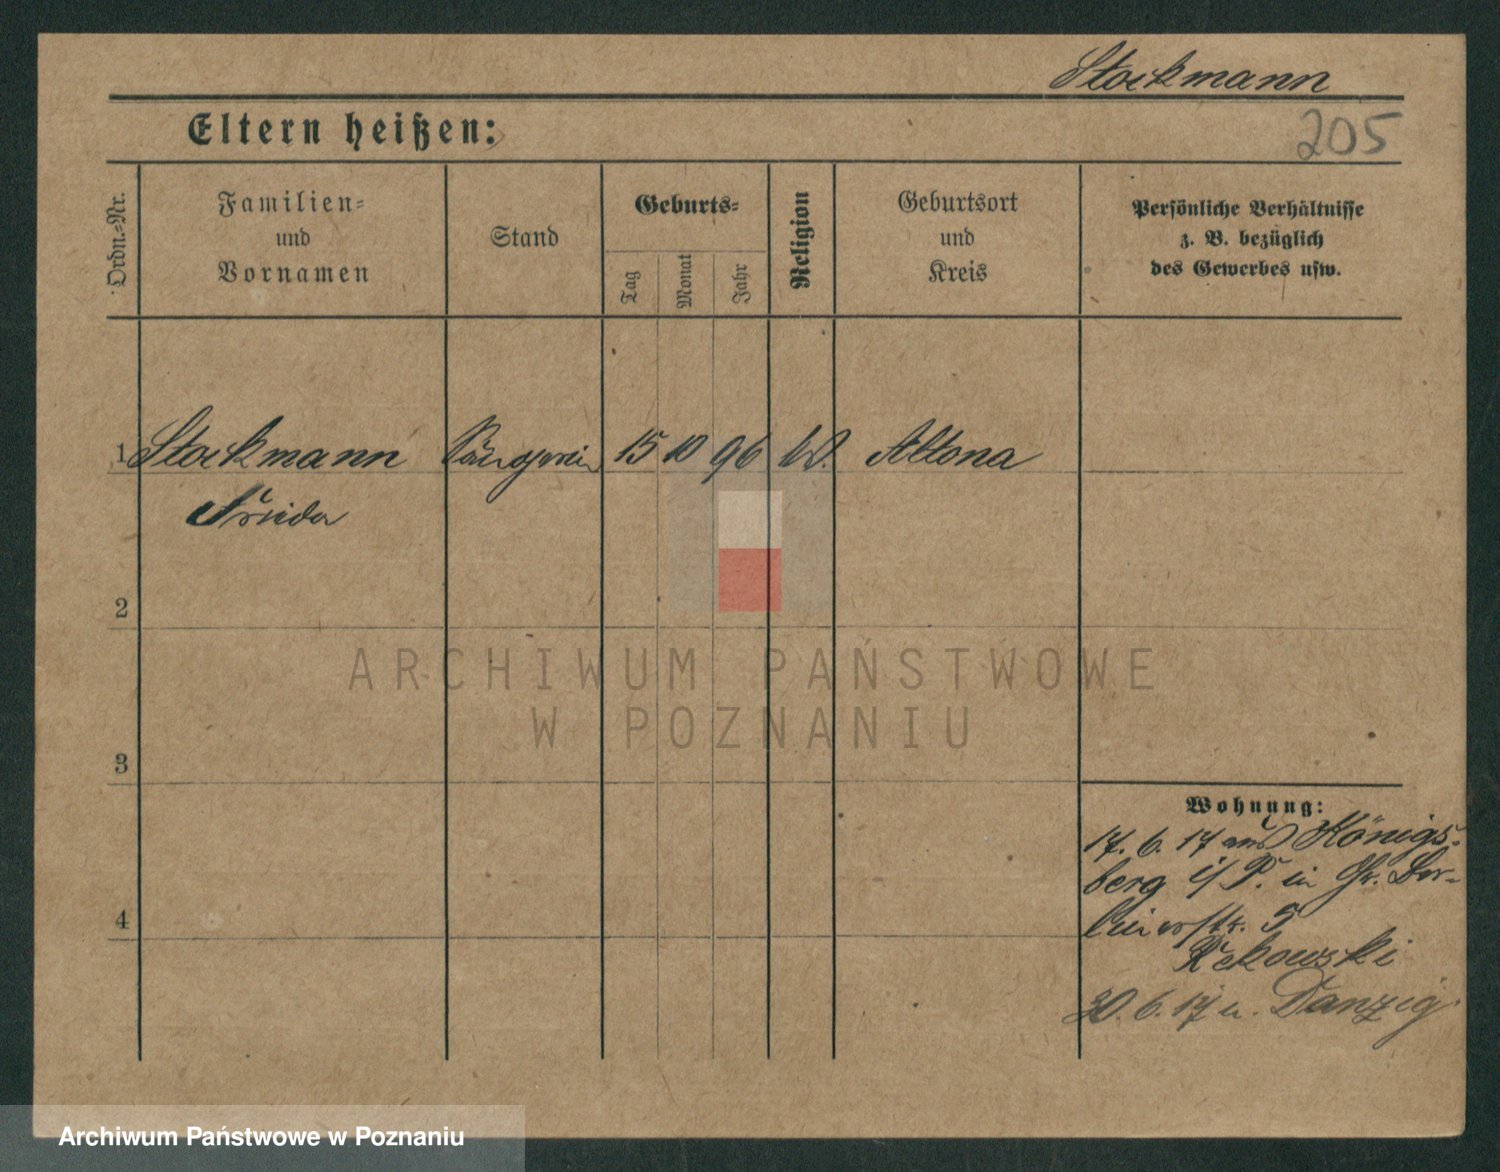 Stockmann
Eltern heißen:
205
Ordn.-Nr.
Familien-
und
Vornamen
Stand
Geburts-
Tag
Monat
Jahr
Religion
Geburtsort
und
Kreis
Persönliche Verhältnisse
z. B. bezüglich
des Gewerbes usw.
1 Stockmann Sängerin 15 10 96 Altona
Frieda
2
ARCHIWUM PAŃSTWOWE
W POZNANIU
3
Wohnung:
17. 6. 17 aus Königs-
berg i/P. in Gr. Ber-
linerstr. 5
Rekowski
4
30. 6. 17 n. Danzig
Archiwum Państwowe w Poznaniu